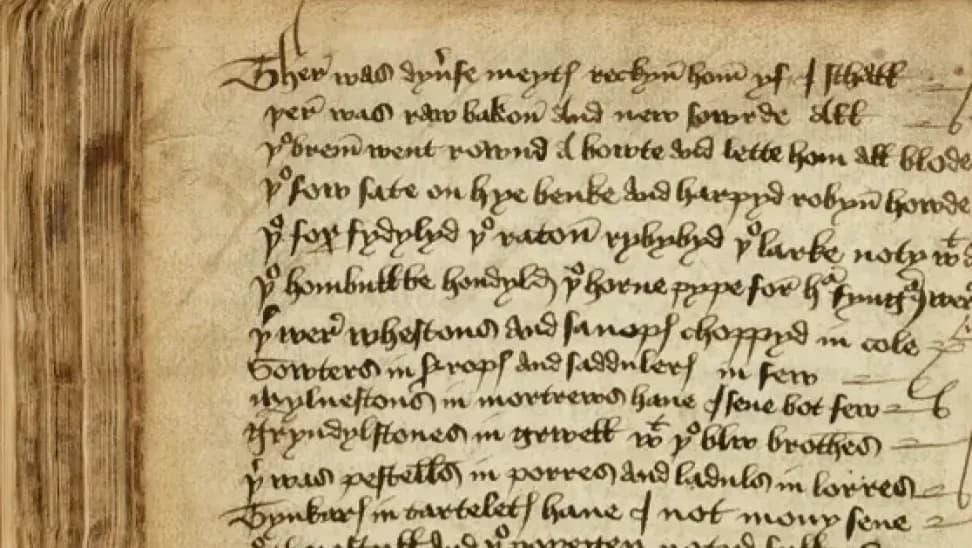 Ther was dyuerse meytes reckyn hom yf I schall
þer was raw bakon And new sowrde All
þe brem went rownd A bowte and lette hom all blode
þe sow sate on hye benke And harpyd robyn howde
þe fox fydylyd þe raton rybybyd þe larke noty wt
þe hombulbe hondyld þe horne pype for hr fyngurs wer
þer wer whestons And fanops choppyd in cole
Sowters in sirops And saddulers in sew
Mylnestons in mortrews haue I sene bot few
Gryndylstones in grwell wt þe blw brothes
þer was pestells in porres And laduls in lorres
Tynkars in tartelets haue I not mony sene